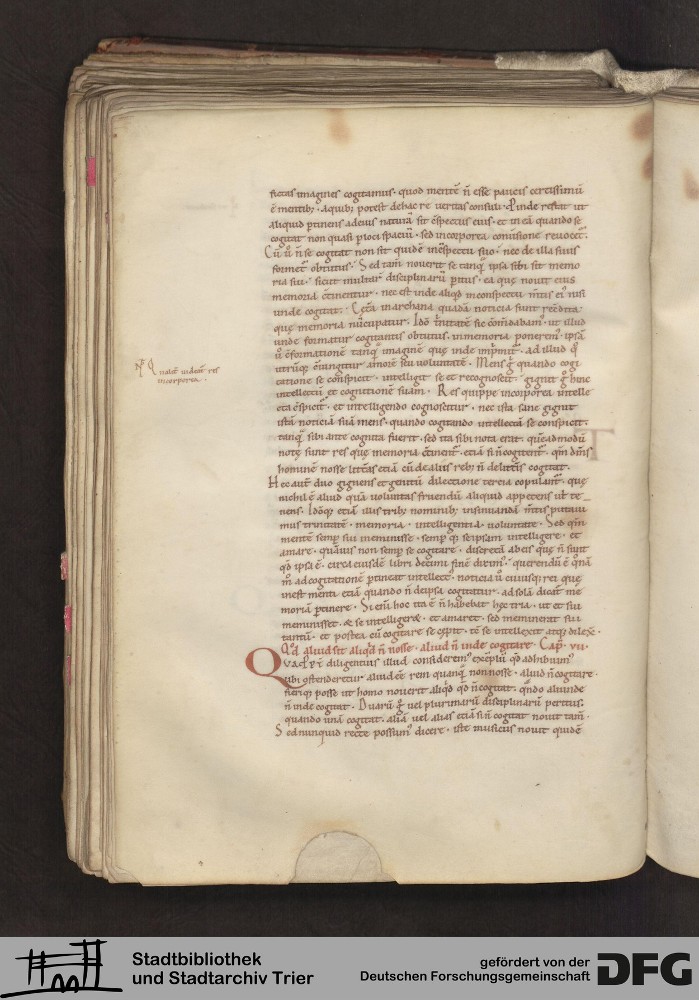 fictas imagines cogitamus. quod mentē ñ esse paucis certissimū
ē mentib;. a quib; potest de hac re veritas consuli. Proinde restat ut
aliquid ꝑtinens ad eius naturā sit cōspectus eius. et in eā quando se
cogitat non quasi ꝑ loci spaciū. sed incorporea conūsione reuocet̄.
Cū ū ñ se cogitat non sit quidē in cōspectu suo. nec de illa suus
formet̄ obtutus. Sed tam̄ nouerit se tanq̄ ipsa sibi sit memo
ria sui. sicut multarū disciplinarū ꝑitus. ea quę nouit eius
memoria cōtinentur. nec est inde aliq̄d in conspectu m̄tis ei᷒ nisi
unde cogitat. Cetera in archana quadā noticia sunt recondita
quę memoria nūcupatur. Ideo t̄nitatē sic cōm̄dabam᷒. ut illud
unde formatur cogitantis obtutus. in memoria ponerem᷒. ipsā
ū cōformationē tanq̄ imaginē quę inde imp̄mit̄. ad illud q̄
utrūq; cōiungitur amorē seu voluntatē. Mens g̊ quando cogi
tatione se conspicit. intelligit se et recognoscit. gignit g̊ hunc
intellectū et cognitionē suam. Res quippe incorporea intelle
cta cōspicit̄. et intelligendo cognoscitur. nec ista sane gignit
istā noticiā suā mens. quando cogitando intellectā se conspicit.
tanq̄ sibi ante incognita fuerit. sed ita sibi nota erat. quēadmodū
notę sunt res quę memoria cōtinent̄. etiā si ñ cogitent̄. qm̄ dicim᷒
hominē nosse litteras etiā cū de aliis reb; ñ de litteris cogitat.
Hec aut̄ duo gignens et genitū dilectione tercia copulant̄. quę
nichil ē aliud quā voluntas fruendū aliquid appetens ul̄ te_
nens. Ideoq; etiā illis trib; nominib; insinuandā m̄tis putaui
mus trinitatē. memoria. intelligentia. voluntate. Sed qm̄
mentē semꝑ sui meminisse. semꝑ q; se ipsam intelligere. et
amare. quāuis non semꝑ se cogitare. discretā ab eis quę ñ sunt
qd̄ ipsa ē. circa eiusdē libri decimi finē dixim᷒. querendū ē q̄nā
m̊ ad cogitationē ꝑtineat intellect᷒. noticia ū cuiusq; rei quę
inest menti etiā quando ñ de ipsa cogitatur. ad solā dicat̄ me
moriā ꝑtinere. Si enī hoc ita ē ñ habebat hęc tria. ut et sui
meminisset. & se intelligeret. et amaret. sed meminerat sui
tantū. et postea cū cogitare se cepit. t̄c se intellexit atq; dilex̄.
Qd̄ aliud sit aliq̄d ñ nosse. aliud ñ inde cogitare. Cap̄. vii.
Quapr̄ diligentius illud considerem᷒ exēplū qd̄ adhibuim᷒
ubi ostenderetur aliud eē rem quanq; non nosse. aliud ñ cogitare.
fieriq; posse ut homo nouerit aliq̄d qd̄ ñ cogitat. q̄ndo aliunde
ñ inde cogitat. Duarū g̊ vel plurimarū disciplinarū peritus.
quando unā cogitat. aliā vel alias etiā si ñ cogitat nouit tam̄.
Sed nunquid recte possum᷒ dicere. iste musicus nouit quidē
Nō Qualit̄ uident̄ res
incorporea.
Stadtbibliothek
und Stadtarchiv Trier
gefördert von der
Deutschen Forschungsgemeinschaft
DFG